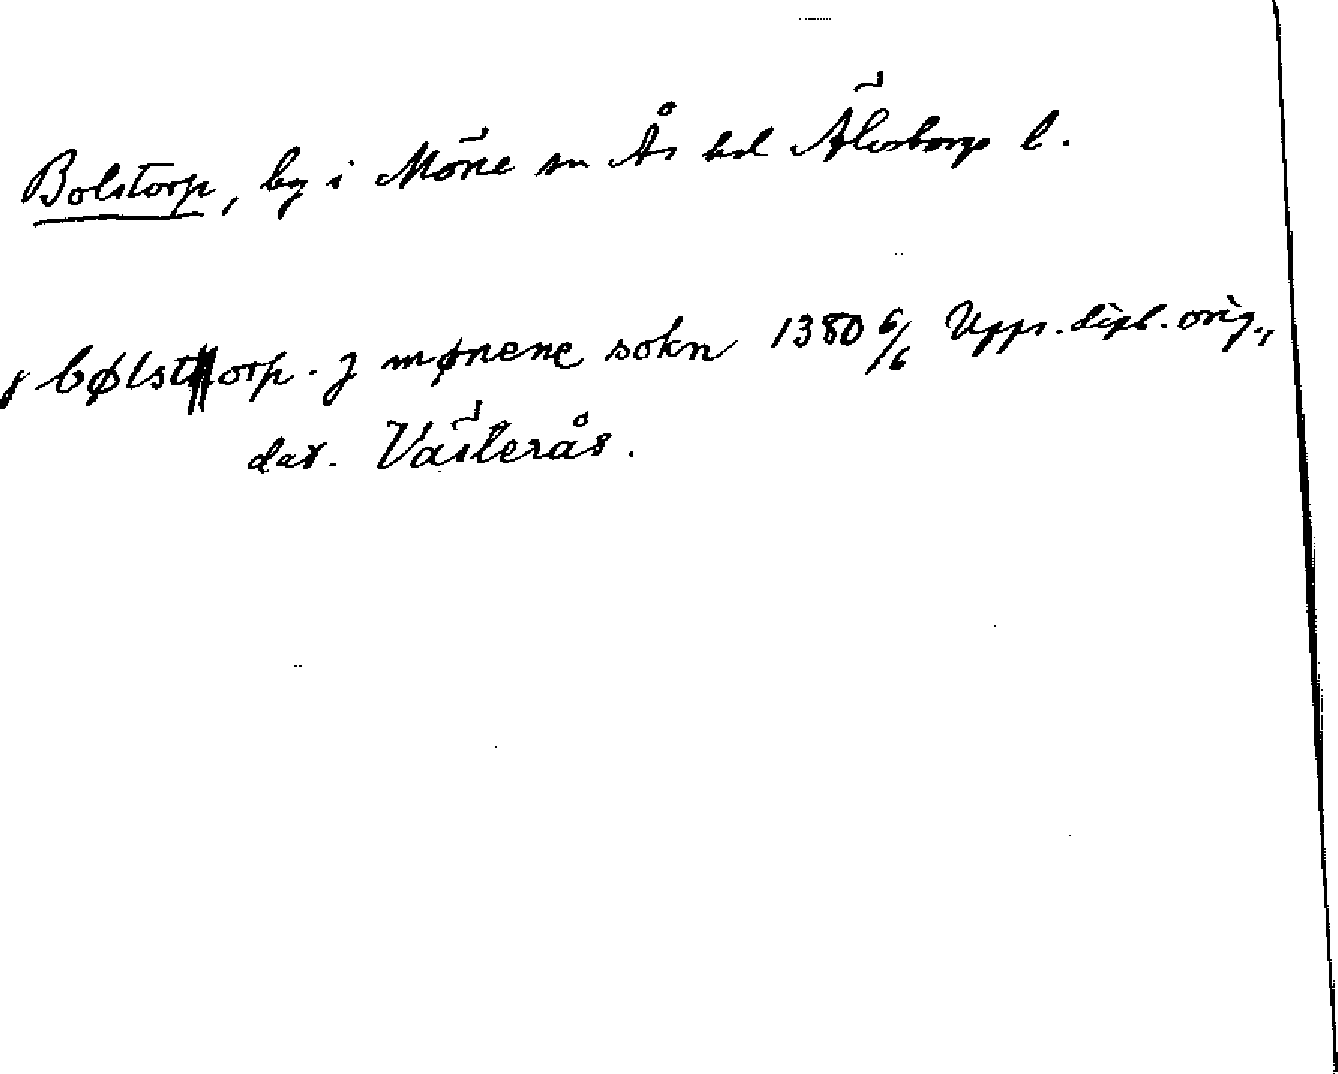 Bolstorp, by i Möne sn Ås hd Älvsborgs l.
j bølstorp. j mønene sokn 1380 6/6 Upps. dipl. orig.,
dat. Västerås.